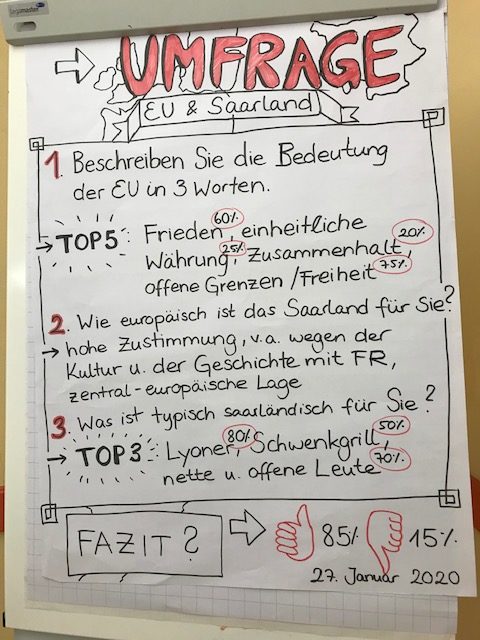 legamaster
UMFRAGE
EU & Saarland
1. Beschreiben Sie die Bedeutung
der EU in 3 Worten.
TOP 5: Frieden 60%, einheitliche
Währung 25%, Zusammenhalt 20%,
offene Grenzen / Freiheit 75%
2. Wie europäisch ist das Saarland für Sie?
hohe Zustimmung, v.a. wegen der
Kultur u. der Geschichte mit FR,
zentral-europäische Lage
3. Was ist typisch saarländisch für Sie?
TOP 3: Lyoner 80%, Schwenkgrill 50%,
nette u. offene Leute 70%
FAZIT? 85% 15%
27. Januar 2020